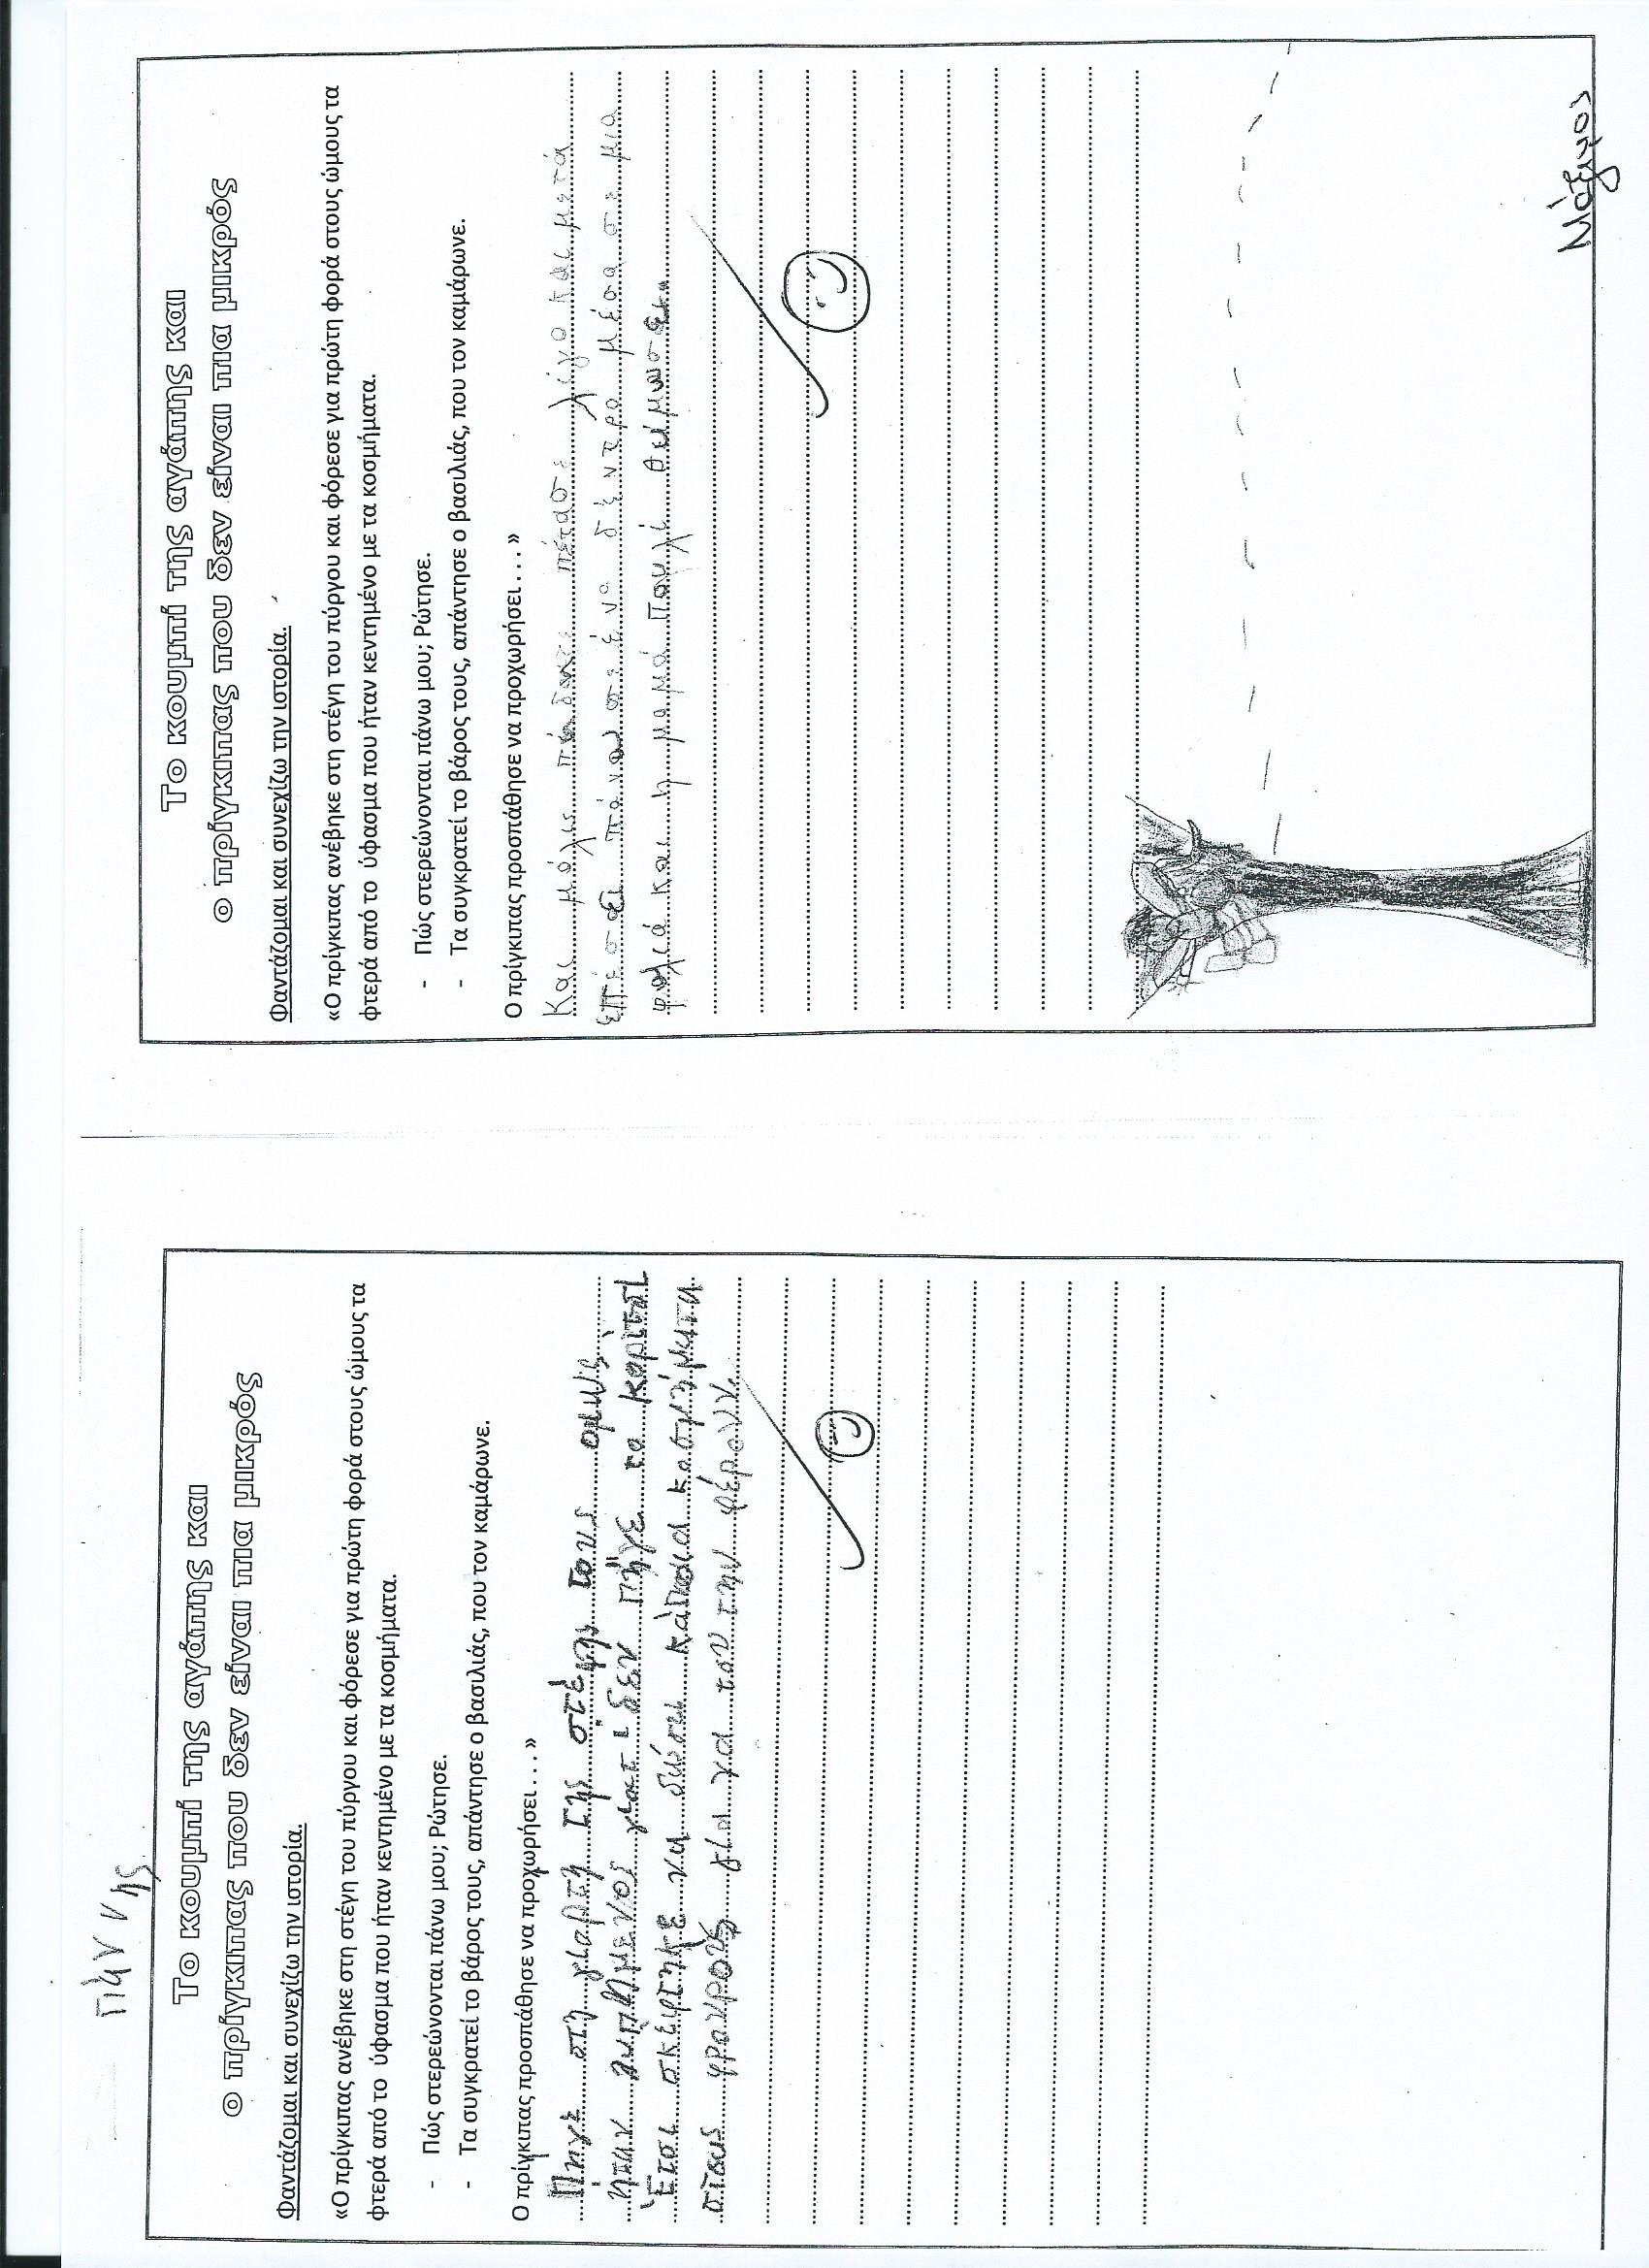 Γιάννης
Το κουμπί της αγάπης και
ο πρίγκιπας που δεν είναι πια μικρός
Φαντάζομαι και συνεχίζω την ιστορία.
«Ο πρίγκιπας ανέβηκε στη στέγη του πύργου και φόρεσε για πρώτη φορά στους ώμους τα
φτερά από το ύφασμα που ήταν κεντημένο με τα κοσμήματα.
- Πώς στερεώνονται πάνω μου; Ρώτησε.
- Τα συγκρατεί το βάρος τους, απάντησε ο βασιλιάς, που τον καμάρωνε.
Ο πρίγκιπας προσπάθησε να προχωρήσει…»
Πήγε στη γιορτή της στέψης τους όμως
ήταν λυπημένος γιατί δεν πήγε το κορίτσι
Έτσι σκέφτηκε να δώσει κάποια κοσμήματα
στους φρουρούς για να του την φέρουν.
Το κουμπί της αγάπης και
ο πρίγκιπας που δεν είναι πια μικρός
Φαντάζομαι και συνεχίζω την ιστορία.
«Ο πρίγκιπας ανέβηκε στη στέγη του πύργου και φόρεσε για πρώτη φορά στους ώμους τα
φτερά από το ύφασμα που ήταν κεντημένο με τα κοσμήματα.
- Πώς στερεώνονται πάνω μου; Ρώτησε.
- Τα συγκρατεί το βάρος τους, απάντησε ο βασιλιάς, που τον καμάρωνε.
Ο πρίγκιπας προσπάθησε να προχωρήσει…»
Και μόλις πέταξε λίγο και μετά
έπεσε πάνω σε ένα δέντρο μέσα σε μια
φωλιά και η μαμά πουλί θύμωσε..
Μάξιμος